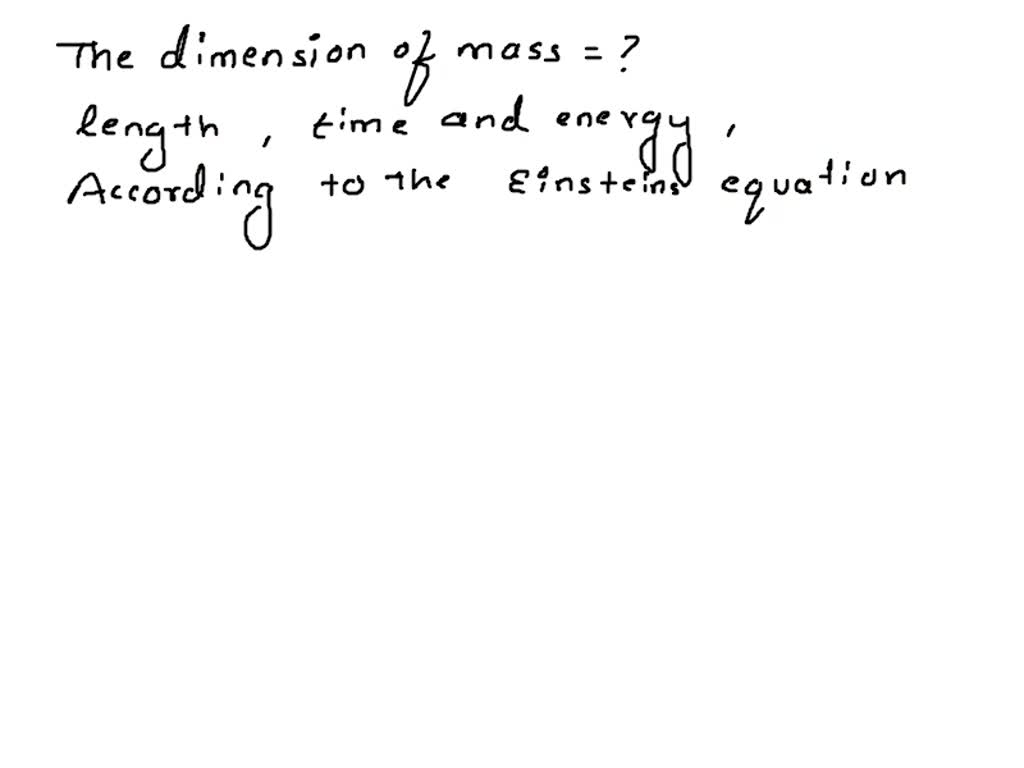 The dimension of mass = ?
length, time and energy,
According to the Einsteins equation